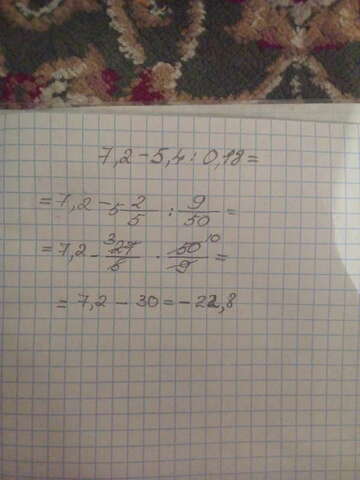 7,2 - 5,4 : 0,18 =
= 7,2 - 5 2/5 : 9/50 =
= 7,2 - 3 27/5 · 50 10/9 =
= 7,2 - 30 = - 22,8